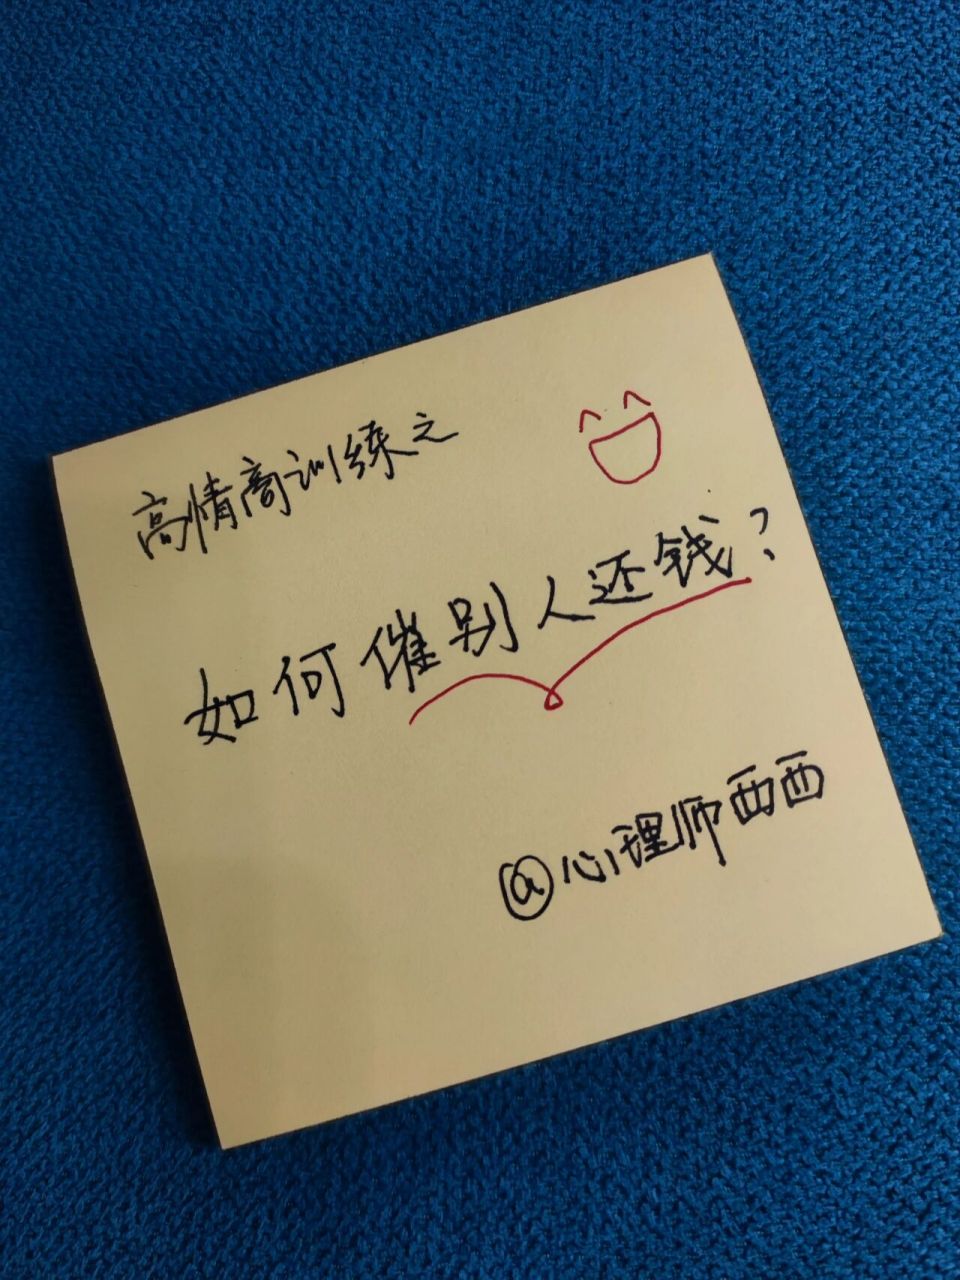 高情商训练之
如何催别人还钱?
@心理师西西